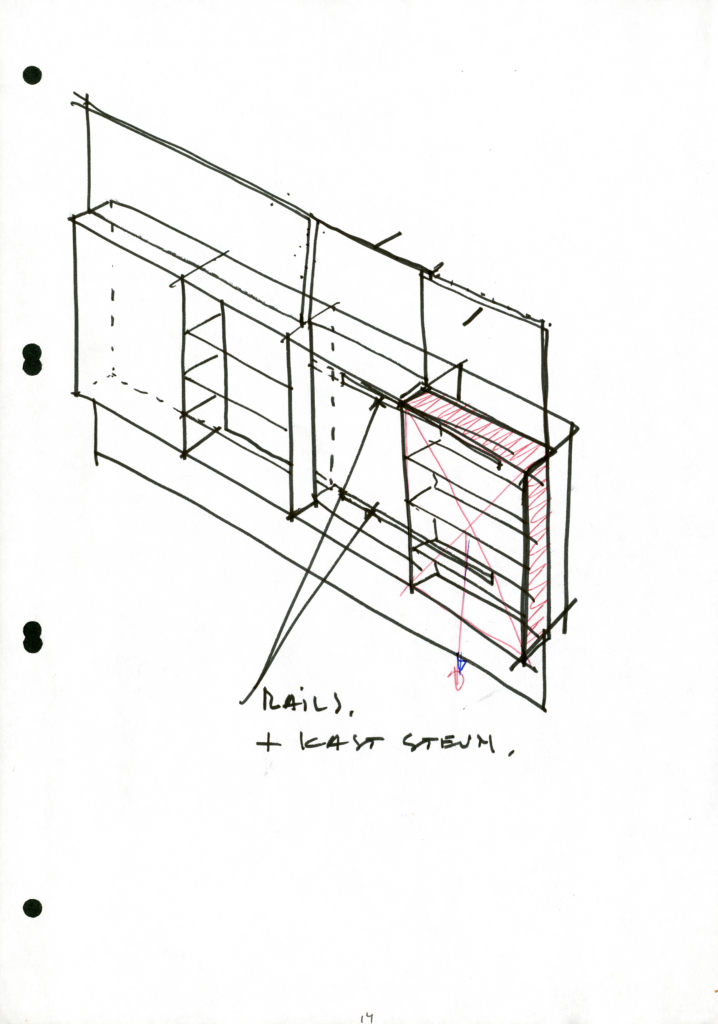 RAILS.
+ KAST STEUN.
14